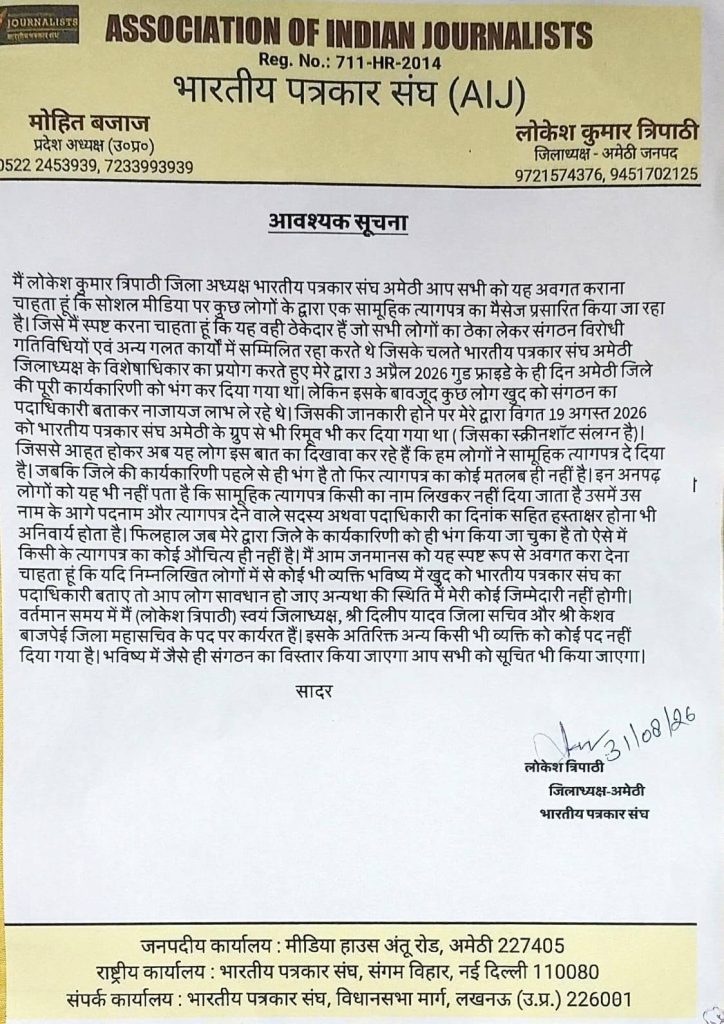 JOURNALISTS
भारतीय पत्रकार संघ
ASSOCIATION OF INDIAN JOURNALISTS
Reg. No.: 711-HR-2014
भारतीय पत्रकार संघ (AIJ)
मोहित बजाज
प्रदेश अध्यक्ष (उ०प्र०)
0522 2453939, 7233993939
लोकेश कुमार त्रिपाठी
जिलाध्यक्ष - अमेठी जनपद
9721574376, 9451702125
आवश्यक सूचना
मैं लोकेश कुमार त्रिपाठी जिला अध्यक्ष भारतीय पत्रकार संघ अमेठी आप सभी को यह अवगत कराना
चाहता हूं कि सोशल मीडिया पर कुछ लोगों के द्वारा एक सामूहिक त्यागपत्र का मैसेज प्रसारित किया जा रहा
है। जिसे मैं स्पष्ट करना चाहता हूं कि यह वही ठेकेदार हैं जो सभी लोगों का ठेका लेकर संगठन विरोधी
गतिविधियों एवं अन्य गलत कार्यो में सम्मिलित रहा करते थे जिसके चलते भारतीय पत्रकार संघ अमेठी
जिलाध्यक्ष के विशेषाधिकार का प्रयोग करते हुए मेरे द्वारा 3 अप्रैल 2026 गुड फ्राइडे के ही दिन अमेठी जिले
की पूरी कार्यकारिणी को भंग कर दिया गया था। लेकिन इसके बावजूद कुछ लोग खुद को संगठन का
पदाधिकारी बताकर नाजायज लाभ ले रहे थे। जिसकी जानकारी होने पर मेरे द्वारा विगत 19 अगस्त 2026
को भारतीय पत्रकार संघ अमेठी के ग्रुप से भी रिमूव भी कर दिया गया था ( जिसका स्क्रीनशॉट संलग्न है)।
जिससे आहत होकर अब यह लोग इस बात का दिखावा कर रहे हैं कि हम लोगों ने सामूहिक त्यागपत्र दे दिया
है। जबकि जिले की कार्यकारिणी पहले से ही भंग है तो फिर त्यागपत्र का कोई मतलब ही नहीं है। इन अनपढ़
लोगों को यह भी नहीं पता है कि सामूहिक त्यागपत्र किसी का नाम लिखकर नहीं दिया जाता है उसमें उस
नाम के आगे पदनाम और त्यागपत्र देने वाले सदस्य अथवा पदाधिकारी का दिनांक सहित हस्ताक्षर होना भी
अनिवार्य होता है। फिलहाल जब मेरे द्वारा जिले के कार्यकारिणी को ही भंग किया जा चुका है तो ऐसे में
किसी के त्यागपत्र का कोई औचित्य ही नहीं है। मैं आम जनमानस को यह स्पष्ट रूप से अवगत करा देना
चाहता हूं कि यदि निम्नलिखित लोगों में से कोई भी व्यक्ति भविष्य में खुद को भारतीय पत्रकार संघ का
पदाधिकारी बताए तो आप लोग सावधान हो जाए अन्यथा की स्थिति में मेरी कोई जिम्मेदारी नहीं होगी।
वर्तमान समय में मैं (लोकेश त्रिपाठी) स्वयं जिलाध्यक्ष, श्री दिलीप यादव जिला सचिव और श्री केशव
बाजपेई जिला महासचिव के पद पर कार्यरत हैं। इसके अतिरिक्त अन्य किसी भी व्यक्ति को कोई पद नहीं
दिया गया है। भविष्य में जैसे ही संगठन का विस्तार किया जाएगा आप सभी को सूचित भी किया जाएगा।
सादर
31/08/26
लोकेश त्रिपाठी
जिलाध्यक्ष-अमेठी
भारतीय पत्रकार संघ
जनपदीय कार्यालय : मीडिया हाउस अंतू रोड, अमेठी 227405
राष्ट्रीय कार्यालय : भारतीय पत्रकार संघ, संगम विहार, नई दिल्ली 110080
संपर्क कार्यालय : भारतीय पत्रकार संघ, विधानसभा मार्ग, लखनऊ (उ.प्र.) 226001